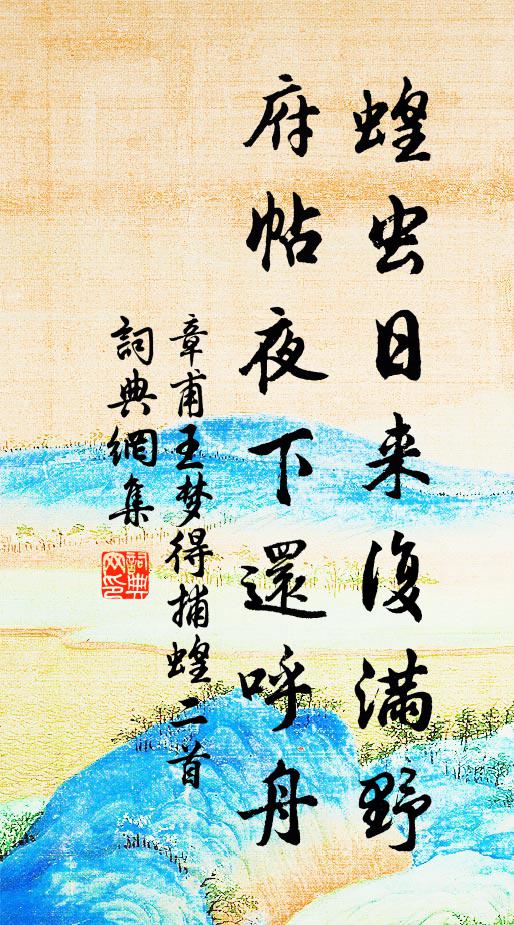 蝗虫日来復满野
府帖夜下還呼舟
章甫王梦得捕蝗二首
詞典網集
詞典网印